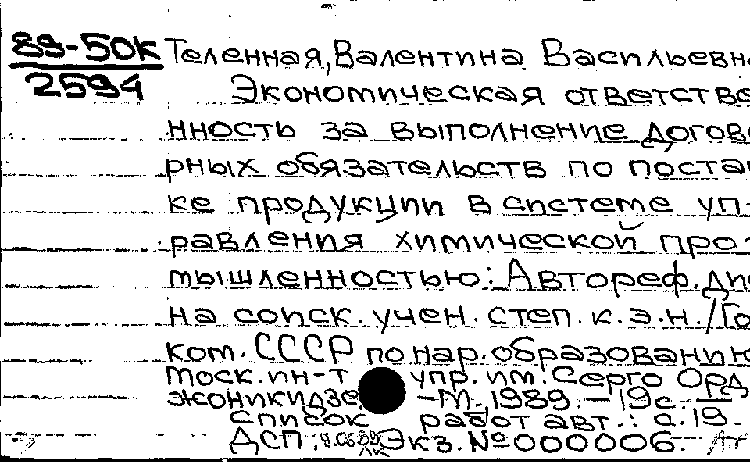 89-50К Теленная, Валентина Васильевна
2594
Экономическая ответстве
нность за выполнение догово
рных обязательств по постав
ке продукции в системе уп-
равления химической про-
мышленностью: Автореф. дис
на соиск. учен. степ. к.э.н. / Го
ком. СССР по нар. образованию
Моск. ин-т упр. им. Серго Орд
жоникидзе -М., 1989. - 19с.
Список работ авт.: с. 19.
ДСП Экз. №000006.